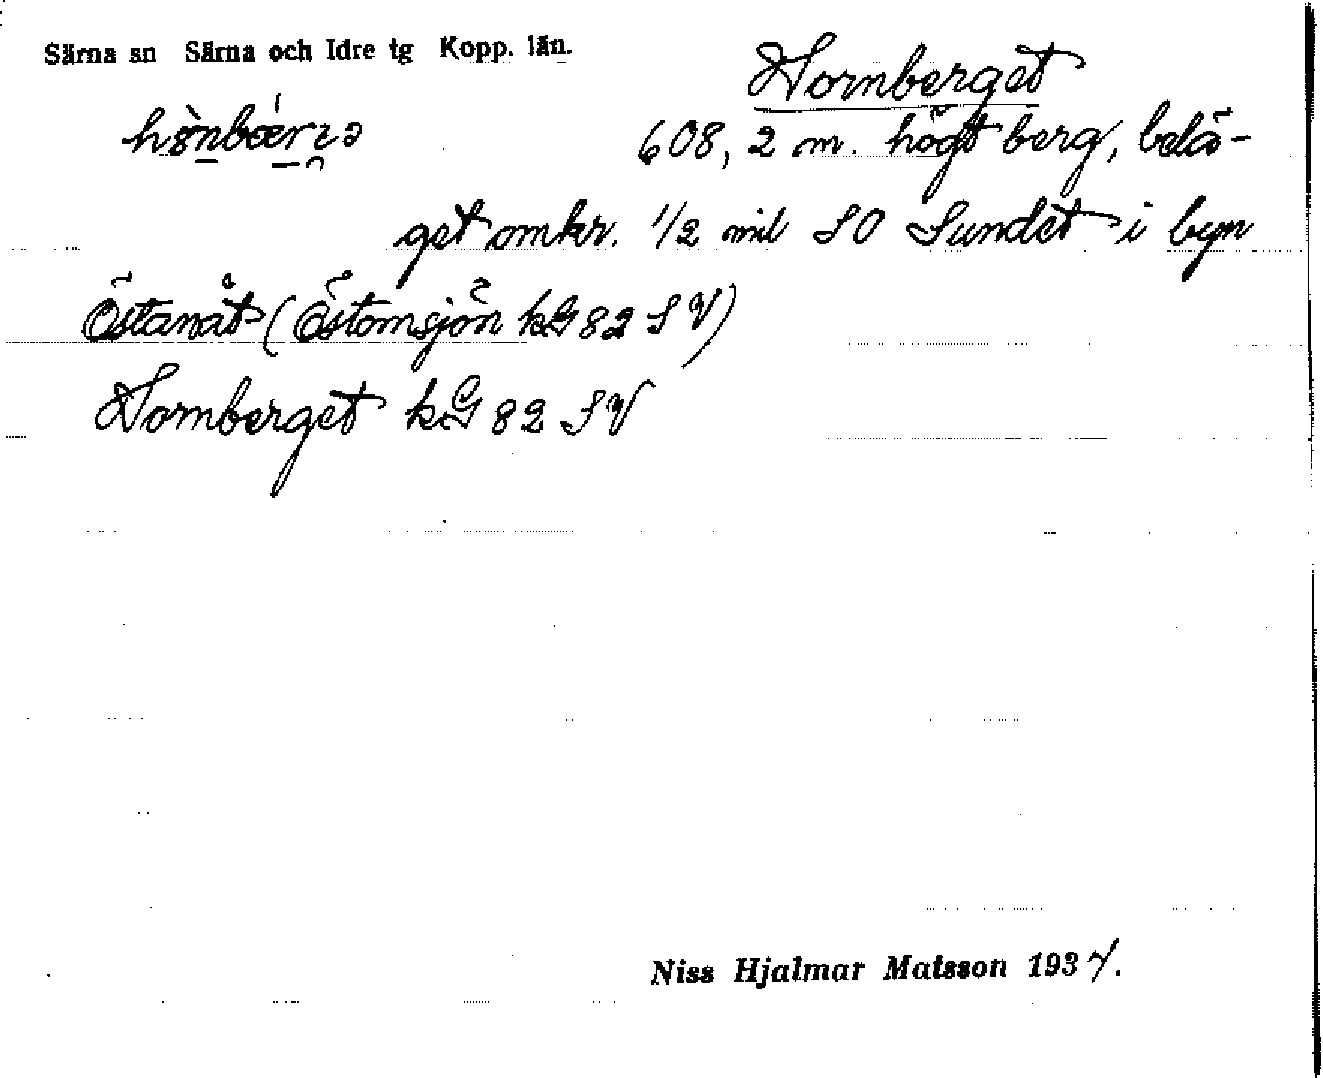 Särna sn Särna och Idre tg Kopp. län.
Hornberget
608,2 m. högt berg, belä-
get omkr. 1/2 mil SO Sundet i byn
Östanåt (Östomsjön kG 82 SV)
Hornberget kG 82 SV
Niss Hjalmar Matsson 1937.